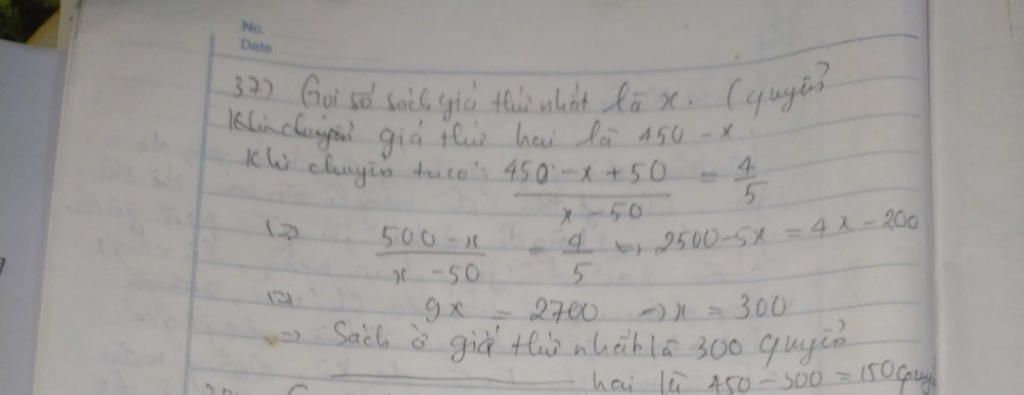 No.
Date
37) Gọi số sách giá thứ nhất là x. (quyển)
giá thứ hai là 450 - x
Khi chuyển ta có: (450 - x + 50)/(x - 50) = 4/5
(=) (500 - x)/(x - 50) = 4/5 => 2500 - 5x = 4x - 200
(=) 9x = 2700 -> x = 300
=> Sách ở giá thứ nhất là 300 quyển
hai là 450 - 300 = 150